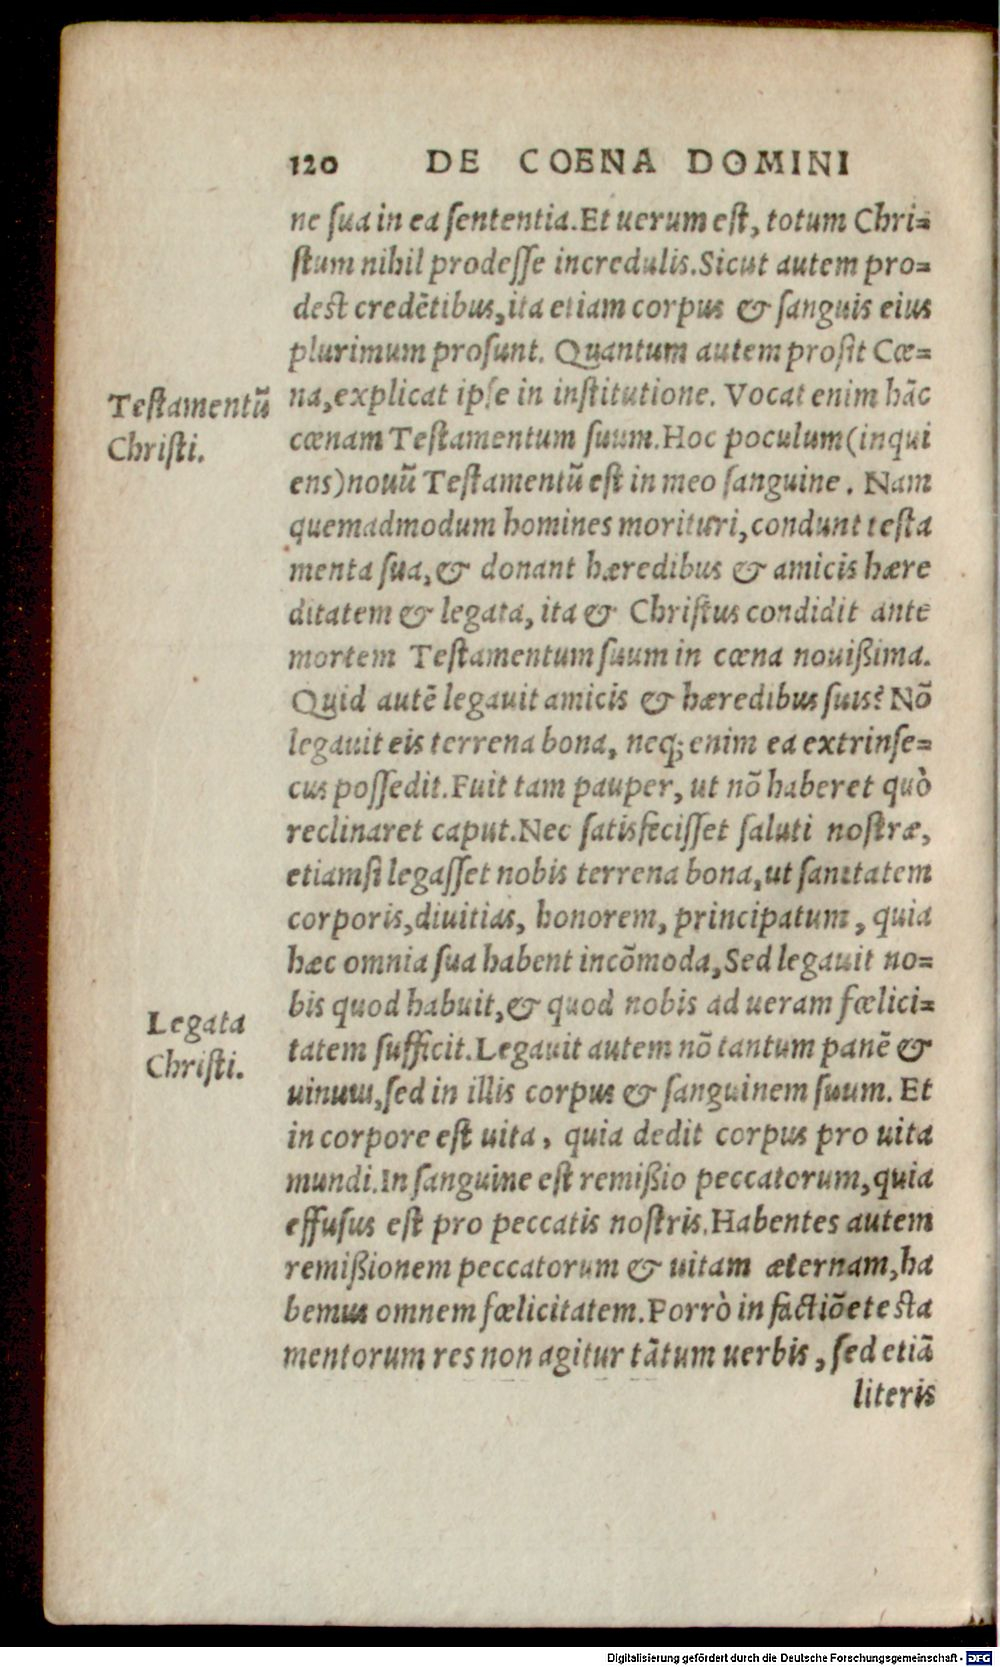 120 DE COENA DOMINI
ne sua in ea sententia. Et uerum est, totum Chri=
stum nihil prodesse incredulis. Sicut autem pro=
dest credētibus, ita etiam corpus & sanguis eius
plurimum prosunt. Quantum autem prosit Cœ=
na, explicat ipse in institutione. Vocat enim hāc
cœnam Testamentum suum. Hoc poculum (inqui
ens) nouū Testamentū est in meo sanguine. Nam
quemadmodum homines morituri, condunt testa
menta sua, & donant hæredibus & amicis hære
ditatem & legata, ita & Christus condidit ante
mortem Testamentum suum in cœna nouißima.
Quid autē legauit amicis & hæredibus suis? Nō
legauit eis terrena bona, neq; enim ea extrinse=
cus possedit. Fuit tam pauper, ut nō haberet quò
reclinaret caput. Nec satisfecisset saluti nostræ,
etiamsi legasset nobis terrena bona, ut sanitatem
corporis, diuitias, honorem, principatum, quia
hæc omnia sua habent incōmoda, Sed legauit no=
bis quod habuit, & quod nobis ad ueram fœlici=
tatem sufficit. Legauit autem nō tantum panē &
uinum, sed in illis corpus & sanguinem suum. Et
in corpore est uita, quia dedit corpus pro uita
mundi. In sanguine est remißio peccatorum, quia
effusus est pro peccatis nostris. Habentes autem
remißionem peccatorum & uitam æternam, ha
bemus omnem fœlicitatem. Porrò in factiōe testa
mentorum res non agitur tātum uerbis, sed etiā
literis
Testamentū
Christi.
Legata
Christi.
Digitalisierung gefördert durch die Deutsche Forschungsgemeinschaft - DFG